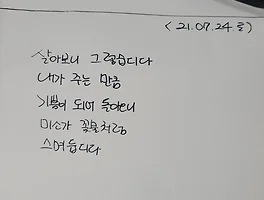 < 21.07.24.토 >
살아보니 그렇습디다
내가 주는 만큼
기쁨이 되어 돌아오니
미소가 꽃물처럼
스며듭디다